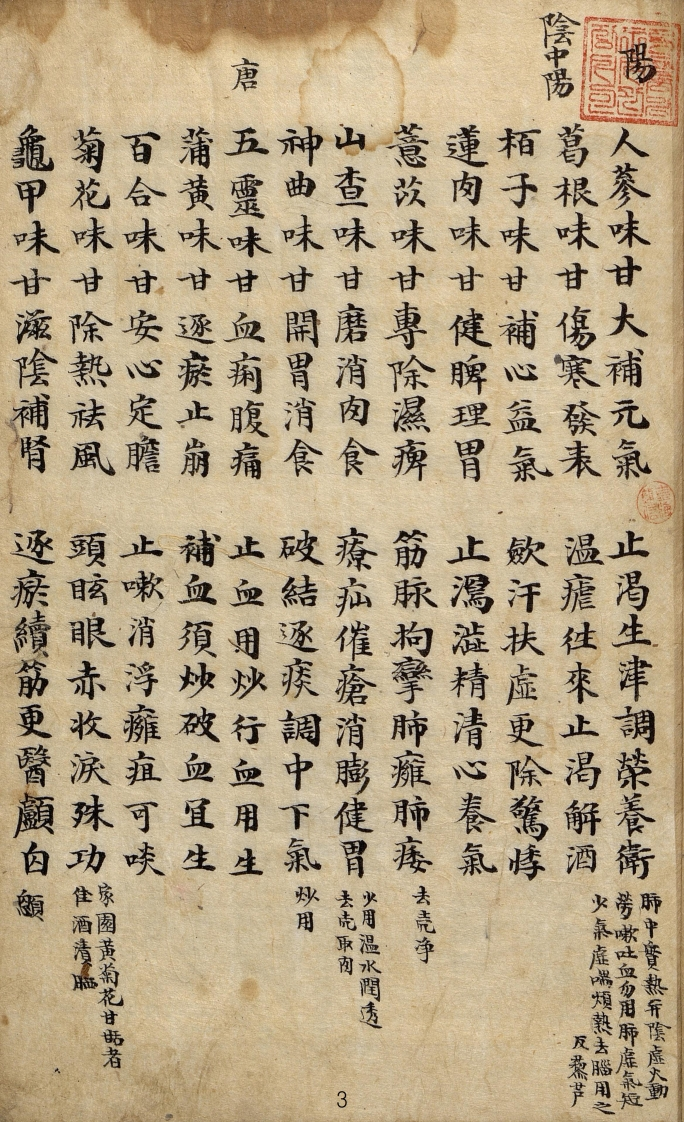 陽
陰中陽
人參味甘大補元氣 止渴生津調榮養衛
肺中實熱幷陰虛火動
勞嗽吐血勿用肺虛氣短
少氣虛喘煩熱去腦用之
反藜芦
葛根味甘傷寒發表 温瘧徃來止渴解酒
栢子味甘補心益氣 歛汗扶虛更除驚悸
蓮肉味甘健脾理胃 止瀉澁精清心養氣
薏苡味甘專除濕痺 筋脉拘攣肺癰肺痿
去壳净
山查味甘磨消肉食 療疝催瘡消膨健胃
少用温水潤透
去壳取肉
神曲味甘開胃消食 破結逐痰調中下氣
炒用
唐
五靈味甘血痢腹痛 止血用炒行血用生
蒲黄味甘逐瘀止崩 補血須炒破血宜生
百合味甘安心定膽 止嗽消浮癰疽可啖
菊花味甘除熱祛風 頭眩眼赤收淚殊功
家園黄菊花甘甛者
住酒清晒
龜甲味甘滋陰補腎 逐瘀續筋更醫顱囟
3